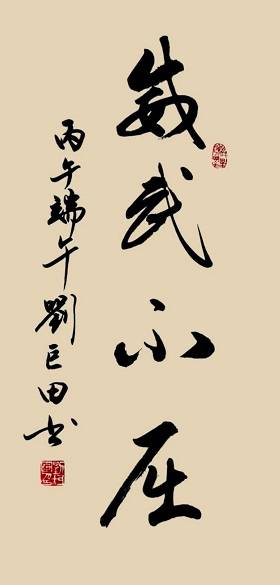 威武不屈
丙午端午劉巨田书